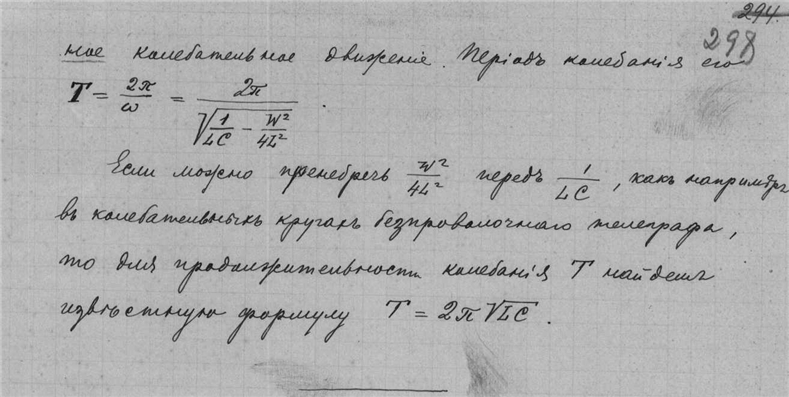 294.
298
ное колебательное движеніе. Періодъ колебанія его
T = 2π/ω = 2π/√(1/LC − W²/4L²).
Если можно пренебречь W²/4L² передъ 1/LC, какъ напримѣръ
въ колебательныхъ кругахъ безпроволочнаго телеграфа,
то для продолжительности колебанія T найдемъ
извѣстную формулу T = 2π√LC.